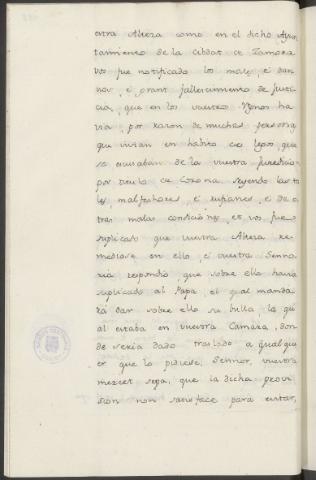 otra Alteza como en el dicho Ayun
tamiento de la Cibdat de Zamora
vos fue notificado los males, é dan
nos, é grant fallescimiento de justi
cia, que en los vuestros Regnos ha
via, por razon de muchas personas
que vivian en habito de legos que
se escusaban de la vuestra juredicion
por titulo de Corona seyendo los ta
les malfechores, é rufianes, é de o
tras malas condiciones, et vos fue
suplicado que vuestra Alteza re
mediase en ello é vuestra Senno
ria respondió que sobre ello havia
suplicado al Papa, el qual manda
ra dar sobre ello su bulla, la qu
al estaba en vuestra Camara, don
de seria dado traslado a qualqui
er que lo pidiese. Sennor, vuestra
merced sepa, que la dicha provi
sion non satisface para evitar,